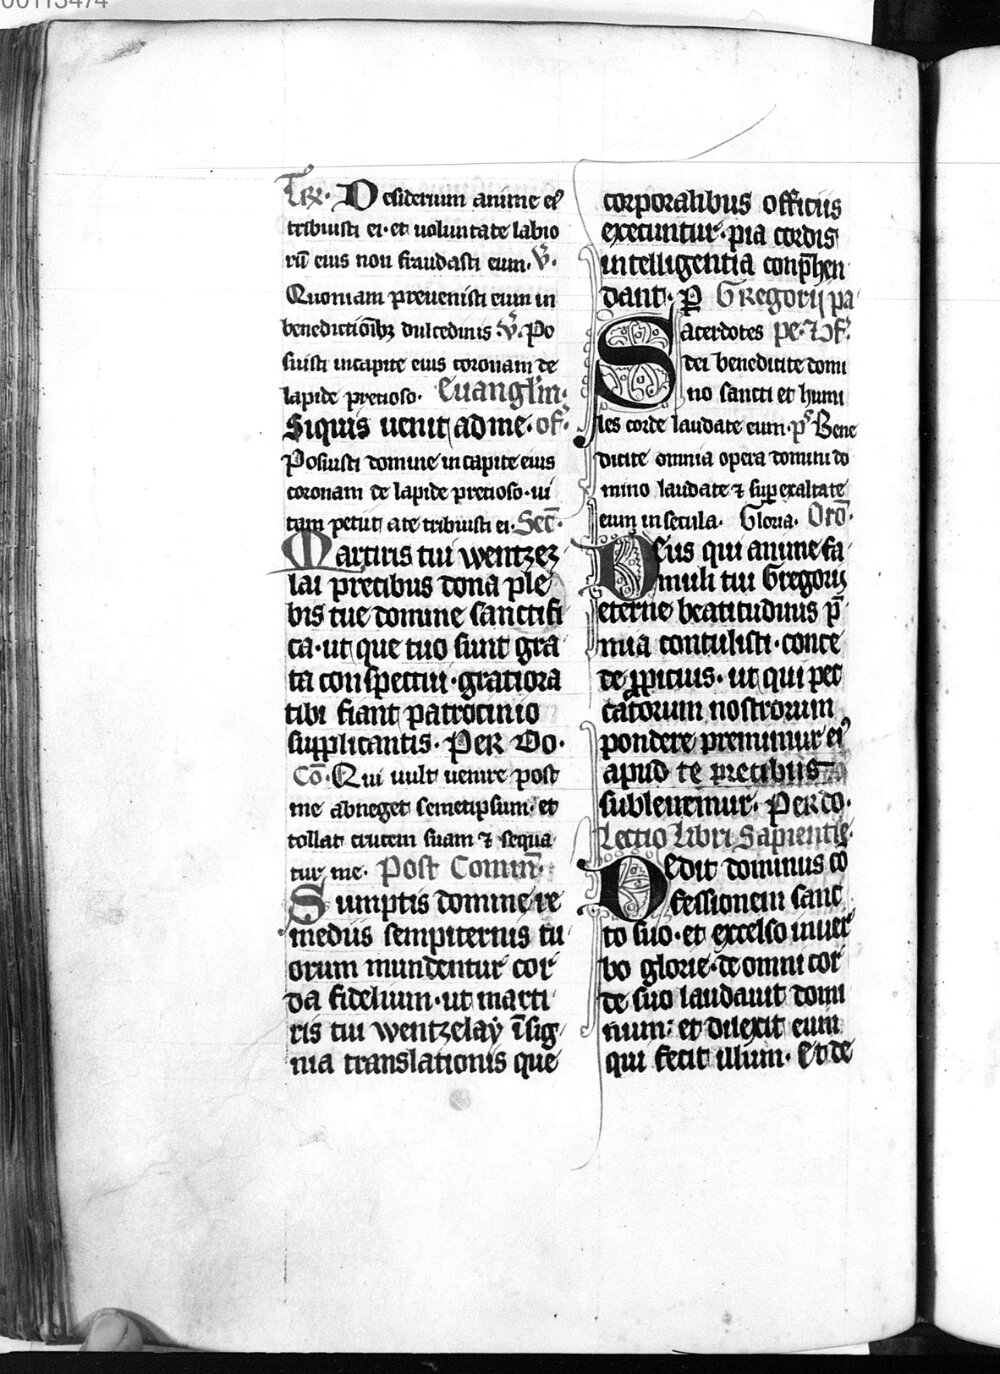 00113474
Trx. Desiderium anime eꝰ
tribuisti ei · et uoluntate labio
rū eius non fraudasti eum. V̄.
Quoniam preuenisti eum in
benedictiōibꝫ dulcedinis V̄. Po
suisti in capite eius coronam de
lapide precioso. Euangliū.
Siquis uenit ad me. of.
Posuisti domine in capite eius
coronam de lapide precioso · ui
tam petiit a te tribuisti ei. Sec̄.
Martiris tui wentzez
lai precibus dona ple
bis tue domine sanctifi
ca · ut que tuo sunt gra
ta conspectui · graciora
tibi fiant patrocinio
supplicantis. Per Do.
Cō. Qui uult uenire post
me abneget semetipsum · et
tollat crucem suam ⁊ sequa
tur me. Post Comūn.
Sumptis domine re
mediis sempiternis tu
orum mundentur cor
da fidelium · ut marti
ris tui wentzelaẏ īsig
nia translationis que
corporalibus officiis
execuntur · pia cordis
intelligentia cōp̄hen
dant. P̲ Gregorij pa
Sacerdotes pe. ⁊ ɔf.
dei benedicite domi
no sancti et humi
les corde laudate eum. pˢ Bene
dicite omnia opera domini do
mino laudate ⁊ suꝑexaltate
eum in secula. Gloria. Orō.
Deus qui anime fa
muli tui Gregorij
eterne beatitudinis p̄
mia contulisti · conce
de ꝓpicius · ut qui pec
catorum nostrorum
pondere premimur eiꝰ
apud te precibus
subleuemur. Per do.
Lectio libri Sapientie.
Dedit dominus cō
fessionem sanc
to suo · et excelso in uer
bo glorie · de omni cor
de suo laudauit domi
num · et dilexit eum
qui fecit illum. Et de